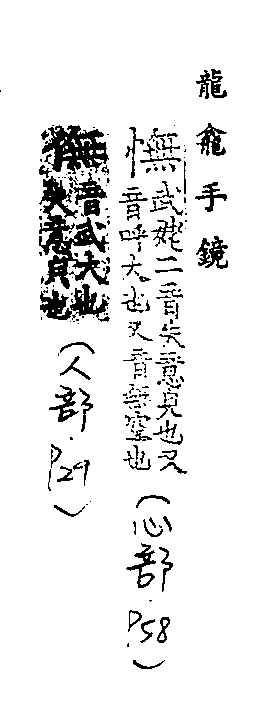 龍龕手鏡
憮武娬二音失意皃也又
音呼大也又音無空也
(心部.P.58)
憮音武大也
失意皃也
(人部.P.29)